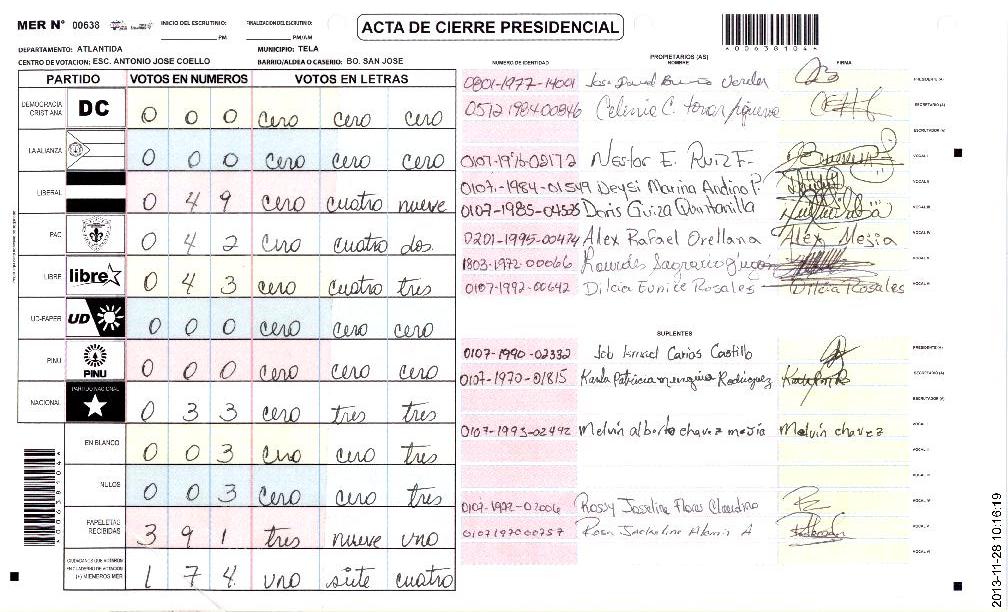 MER N° 00638 INICIO DEL ESCRUTINIO: PM FINALIZACION DEL ESCRUTINIO: PM/AM
ACTA DE CIERRE PRESIDENCIAL
*00638104*
DEPARTAMENTO: ATLANTIDA MUNICIPIO: TELA
CENTRO DE VOTACION: ESC. ANTONIO JOSE COELLO BARRIO/ALDEA O CASERIO: BO. SAN JOSE
PARTIDO VOTOS EN NUMEROS VOTOS EN LETRAS
DEMOCRACIA CRISTIANA DC 0 0 0 cero cero cero
LA ALIANZA 0 0 0 cero cero cero
LIBERAL 0 4 9 cero cuatro nueve
PAC 0 4 2 cero cuatro dos
LIBRE libre 0 4 3 cero cuatro tres
UD-FAPER UD 0 0 0 cero cero cero
PINU PINU 0 0 0 cero cero cero
NACIONAL PARTIDO NACIONAL 0 3 3 cero tres tres
EN BLANCO 0 0 3 cero cero tres
NULOS 0 0 3 cero cero tres
PAPELETAS RECIBIDAS 3 9 1 tres nueve uno
CIUDADANOS QUE VOTARON EN CUADERNO DE VOTACION (+) MIEMBROS MER 1 7 4 uno siete cuatro
*00638104*
PROPIETARIOS (AS)
NUMERO DE IDENTIDAD NOMBRE FIRMA
0801-1977-14001 Jose David PRESIDENTE (A)
0512 1984 00846 Celenia C. Tovar Figueroa SECRETARIO (A)
ESCRUTADOR (A)
0107-1976-02172 Nestor E. Ruiz F. VOCAL I
0107-1984-01549 Deysi Marina Andino P. VOCAL II
0107-1985-04525 Doris Guiza Quintanilla VOCAL III
0201-1995-00474 Alex Rafael Orellana Alex Mejia VOCAL IV
1803-1972-00066 Lourdes Sagrario VOCAL V
0107-1992-00642 Dilcia Eunice Rosales Dilcia Rosales VOCAL VI
SUPLENTES
0107-1990-02332 Job Ismael Carias Castillo PRESIDENTE (A)
0107-1970-01815 Karla Patricia Rodriguez SECRETARIO (A)
ESCRUTADOR (A)
0107-1993-02492 Melvin alberto chavez mejia Melvin chavez VOCAL I
VOCAL II
VOCAL III
0107-1992-02006 Rossy Joseline Flores Claudino VOCAL IV
0107197000757 Rosa Jackeline A VOCAL V
VOCAL VI
2013-11-28 10:16:19